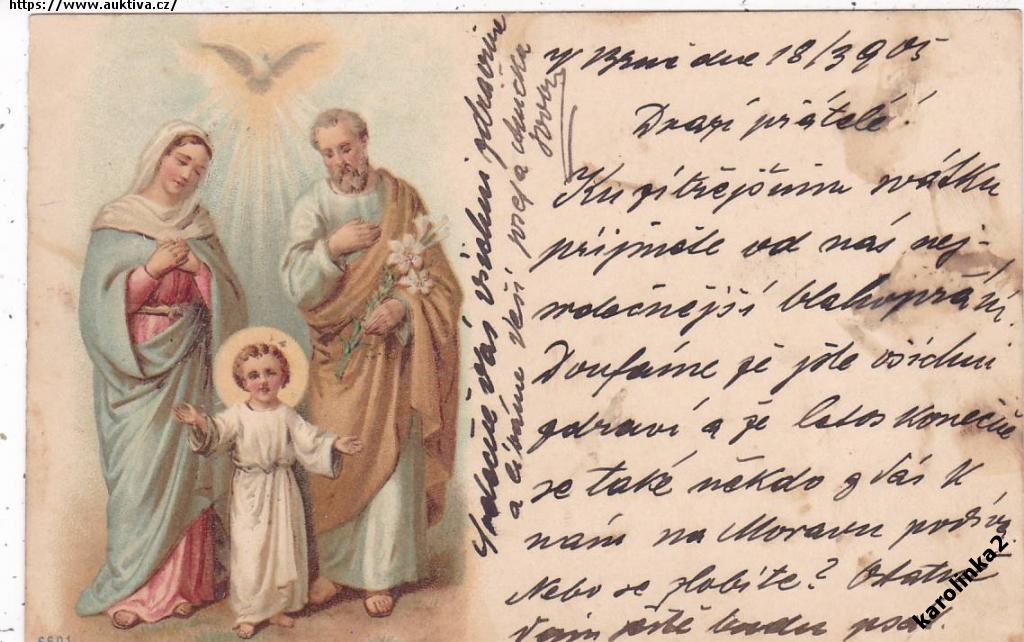 https://www.auktiva.cz/
V Brně dne 18/3 905
Drazí přátelé!
Ku zítřejšímu svátku
přijměte od nás nej-
srdečnější blahopřání.
Doufáme že jste všichni
zdraví a že letos konečně
se také někdo z Vás k
nám na Moravu podívá.
Nebo se zlobíte? Ostatně
Vám ještě budu psát.
Srdečně Vás všichni zdravíme
a líbáme Vaši
6601
karolinka2